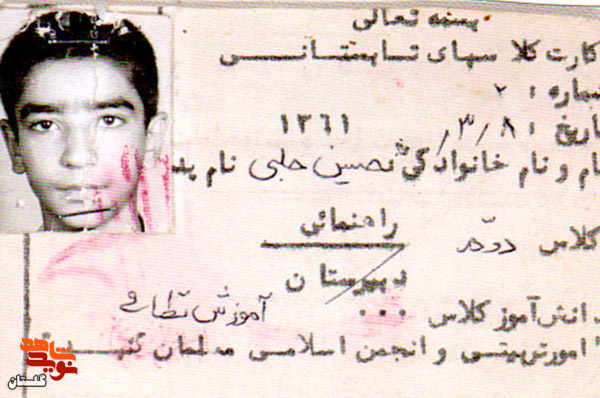 بسمه تعالی
کارت کلا سهای تابستانی
شماره : ۲
تاریخ : ۸ / ۳ / ۱۳۶۱
نام و نام خانوادگی حلبی نام پد
کلاس دوم راهنمائی
دبیرستان
دانش آموز کلاس . . . آموزش نظامی
امورتربیتی و انجمن اسلامی معلمان
نوید شاهد
گلستان